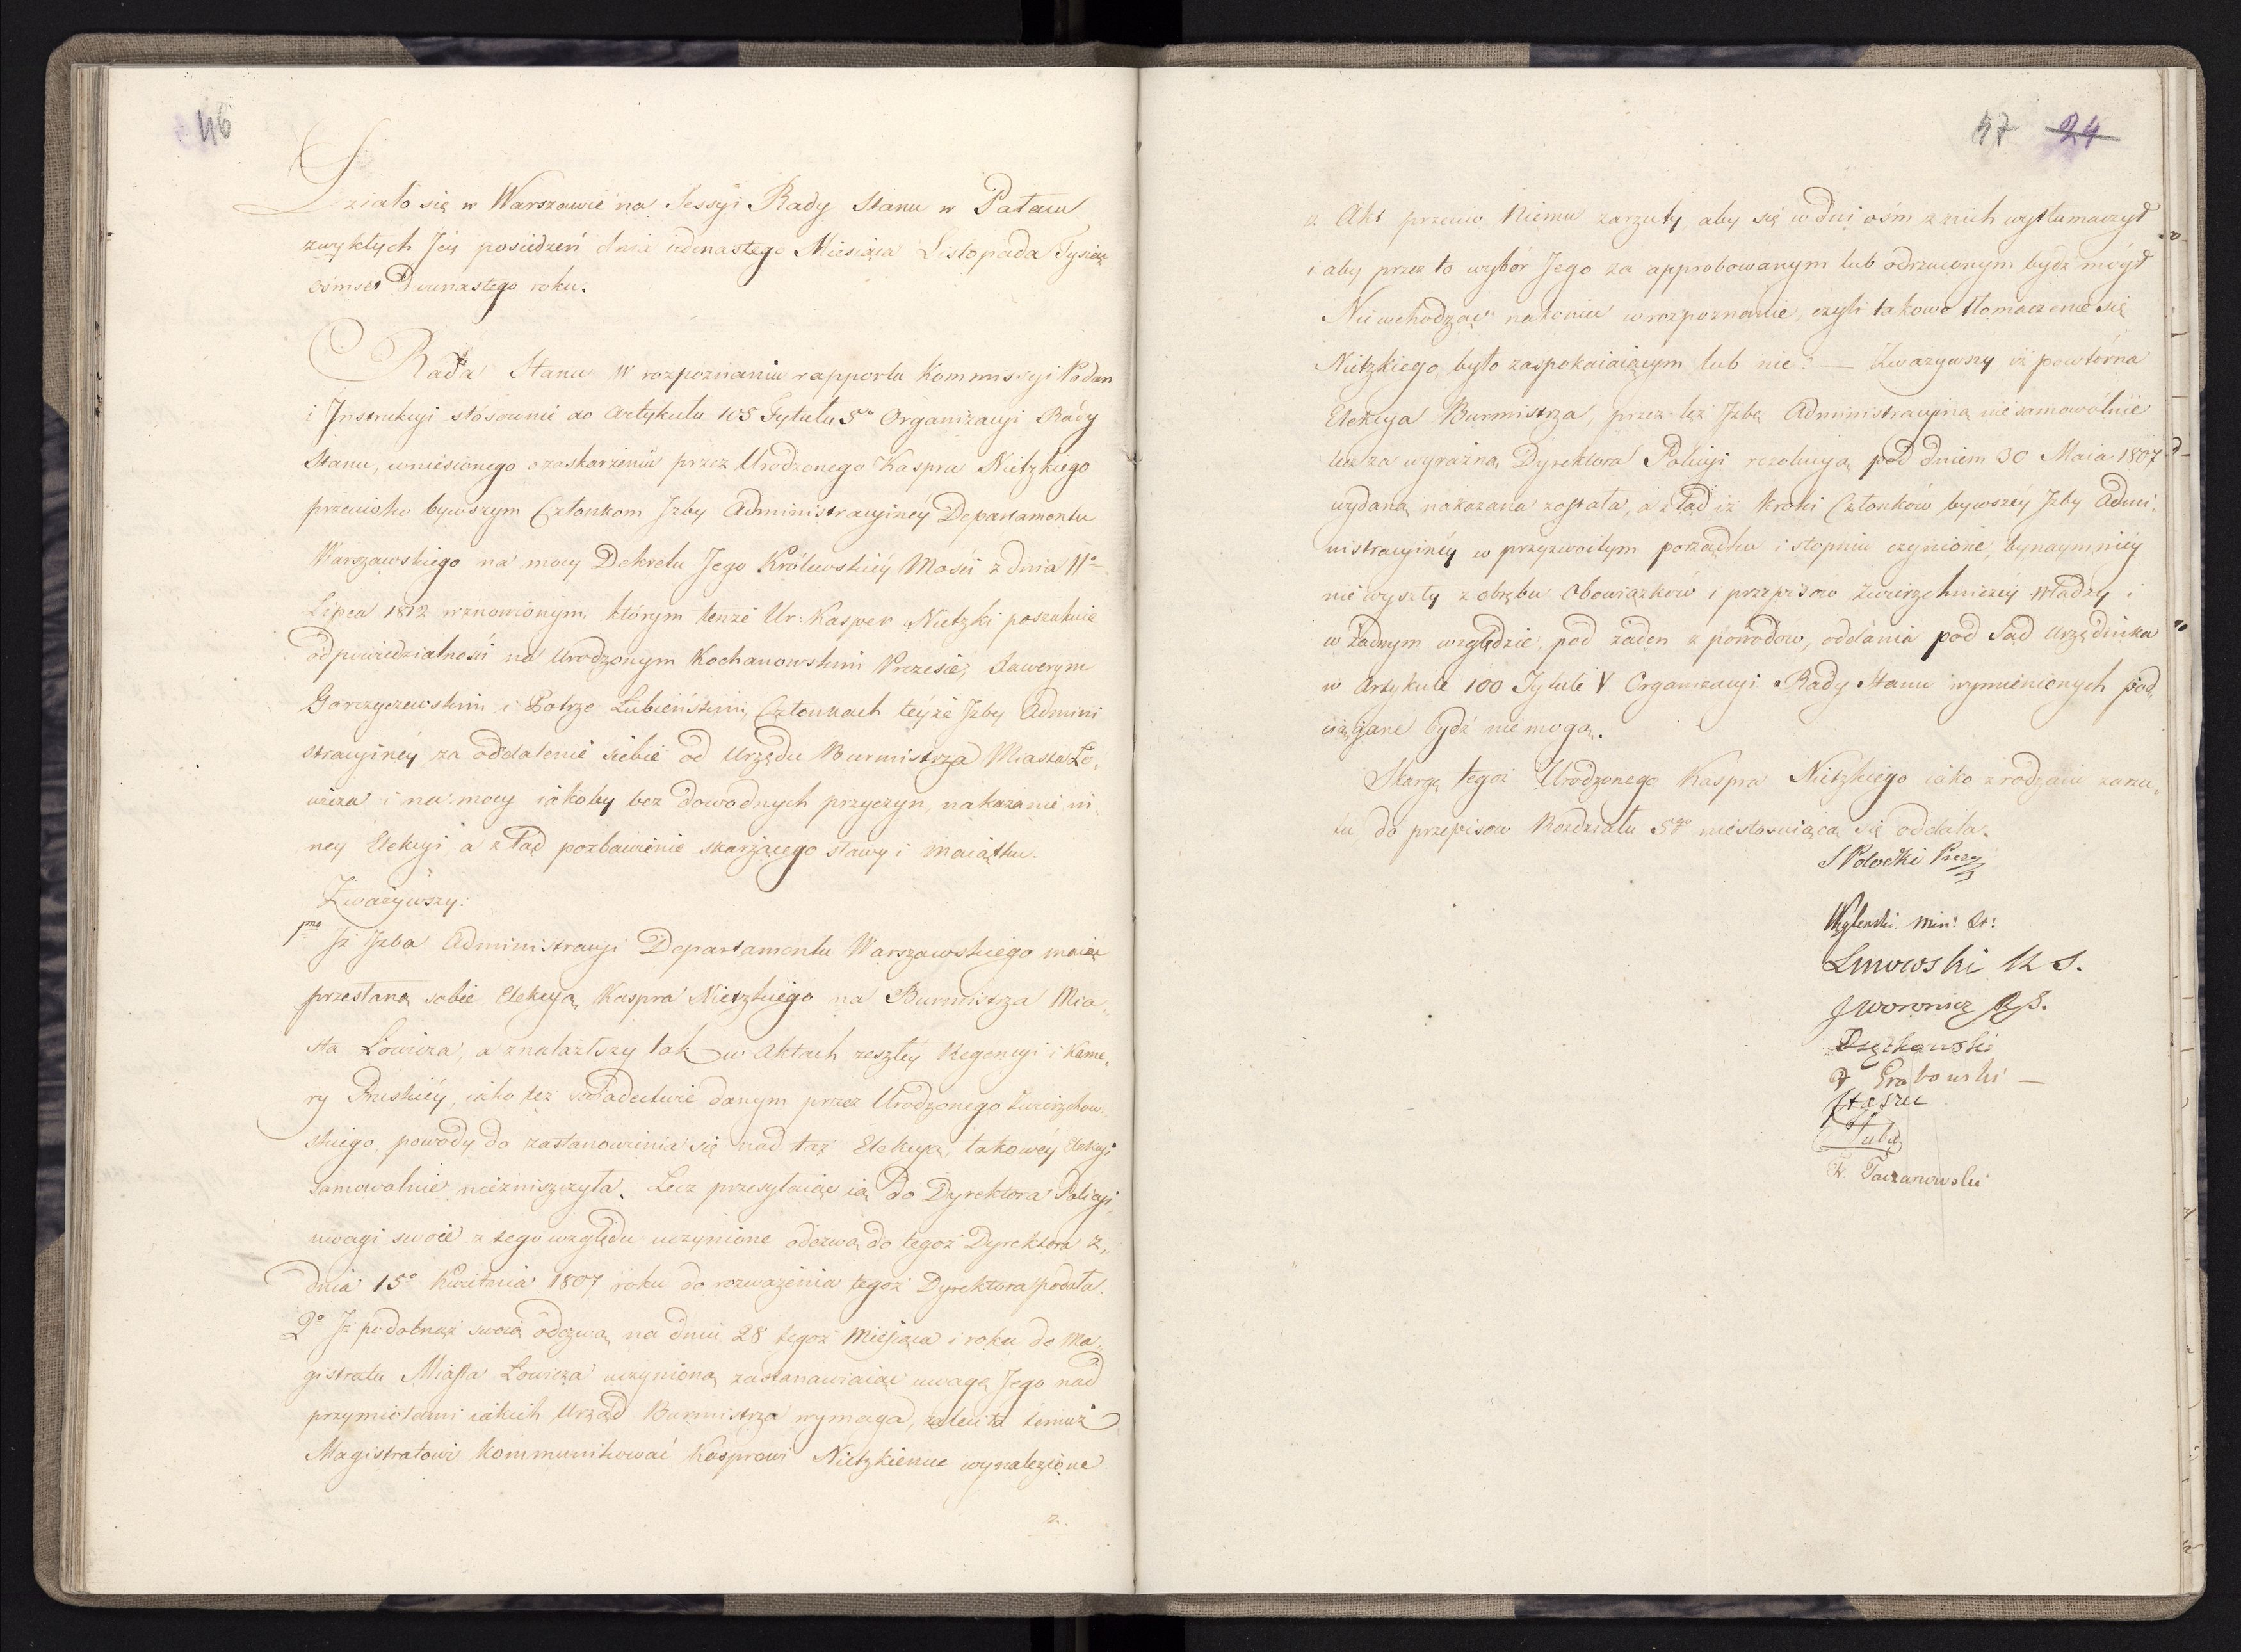 46
Działo się w Warszawie na Sessyi Rady Stanu w Pałacu
zwykłych Jéy posiedzeń dnia iedenastego Miesiąca Listopada Tysiąc
ośmset Dwunastego roku.
Rada Stanu w rozpoznaniu rapportu Kommissyi Podań
i Instrukcyi stósownie do Artykułu 105 Tytułu 5º Organizacyi Rady
Stanu, wniesionego o zaskarżeniu przez Urodzonego Kaspra Nietzkiego
przeciwko bywszym Członkom Izby Administracyinéy Departamentu
Warszawskiego na mocy Dekretu Jego Królewskiéy Mości z dnia 11º
Lipca 1812 wznowionym, którym tenże Ur: Kasper Nietzki poszukuie
odpowiedzialności na Urodzonym Kochanowskim Prezesie, Xawerym
Gorczyczewskim i Piotrze Lubieńskim, Członkach teyże Izby Admini
stracyinéy za oddalenie siebie od Urzędu Burmistrza Miasta Ło„
wicza i na mocy iakoby bez dowodnych przyczyn, nakazanie in„
ney Elekcyi a ztąd pozbawienie skarżącego sławy i maiątku.
Zważywszy:
1mo Iż Izba Administracyi Departamentu Warszawskiego maiąc
przesłaną sobie Elekcyą Kaspra Nietzkiego na Burmistrza Mia„
sta Łowicza, a znalazłszy tak w Aktach zeszłey Regencyi i Kame„
ry Pruskiéy, iako też świadectwie danym przez Urodzonego Zwierzchow„
skiego, powody do zastanowienia się nad tąż Elekcyą, takowéy Elekcyi
samowolnie niezniszczyła. Lecz przesyłaiąc ią do Dyrektora Policyi,
uwagi swoie z tego względu uczynione odezwą do tegoż Dyrektora z„
dnia 15º Kwietnia 1807 roku do rozważenia tegoż Dyrektora podała.
2º Iż podobnąż swoią odezwą na dniu 28 tegoż Miesiąca i roku do Ma„
gistratu Miasta Łowicza uczynioną zastanawiaiąc uwagę Jego nad
przymiotami iakich Urząd Burmistrza wymaga, zaleciła temuż
Magistratowi kommunikować Kasprowi Nietzkiemu wynalezione
z.
47 24
z Akt przeciw Niemu zarzuty, aby się w dni ośm z nich wytłumaczył
i aby przez to wybór Jego za approbowanym lub odrzuconym bydź mógł
Nie wchodząc nakoniec w rozpoznanie, czyli takowe tłomaczenie się
Nietzkiego, było zaspokaiaiącym lub nie? — Zważywszy iż powtórna
Elekcya Burmistrza, przez też Izbę Administracyiną nie samowólnie
lecz za wyraźną Dyrektora Policyi rezolucyą pod dniem 30 Maia 1807
wydaną nakazana została, a ztąd iż kroki Członków bywszéy Izby Admi„
nistracyinéy w przyzwoitym porządku i stopniu czynione, bynaymniéy
nie wyszły z obrębu Obowiązków i przepisów Zwierzchniczéy władzy i
w żadnym względzie, pod żaden z powodów, oddania pod Sąd Urzędnika
w Artykule 100 Tytule V Organizacyi Rady Stanu wymienionych pod„
ciągane bydź niemogą.
Skargę tegoż Urodzonego Kaspra Nietzkiego iako z rodzaiu zarzu„
tu do przepisow Rozdziału 5go niestosuiącą się oddala.
S Potocki Prezes
Węglenski Min: St:
Linowski R S.
J Woronicz R S.
F Grabowski —
Staszic
F. Taczanowski